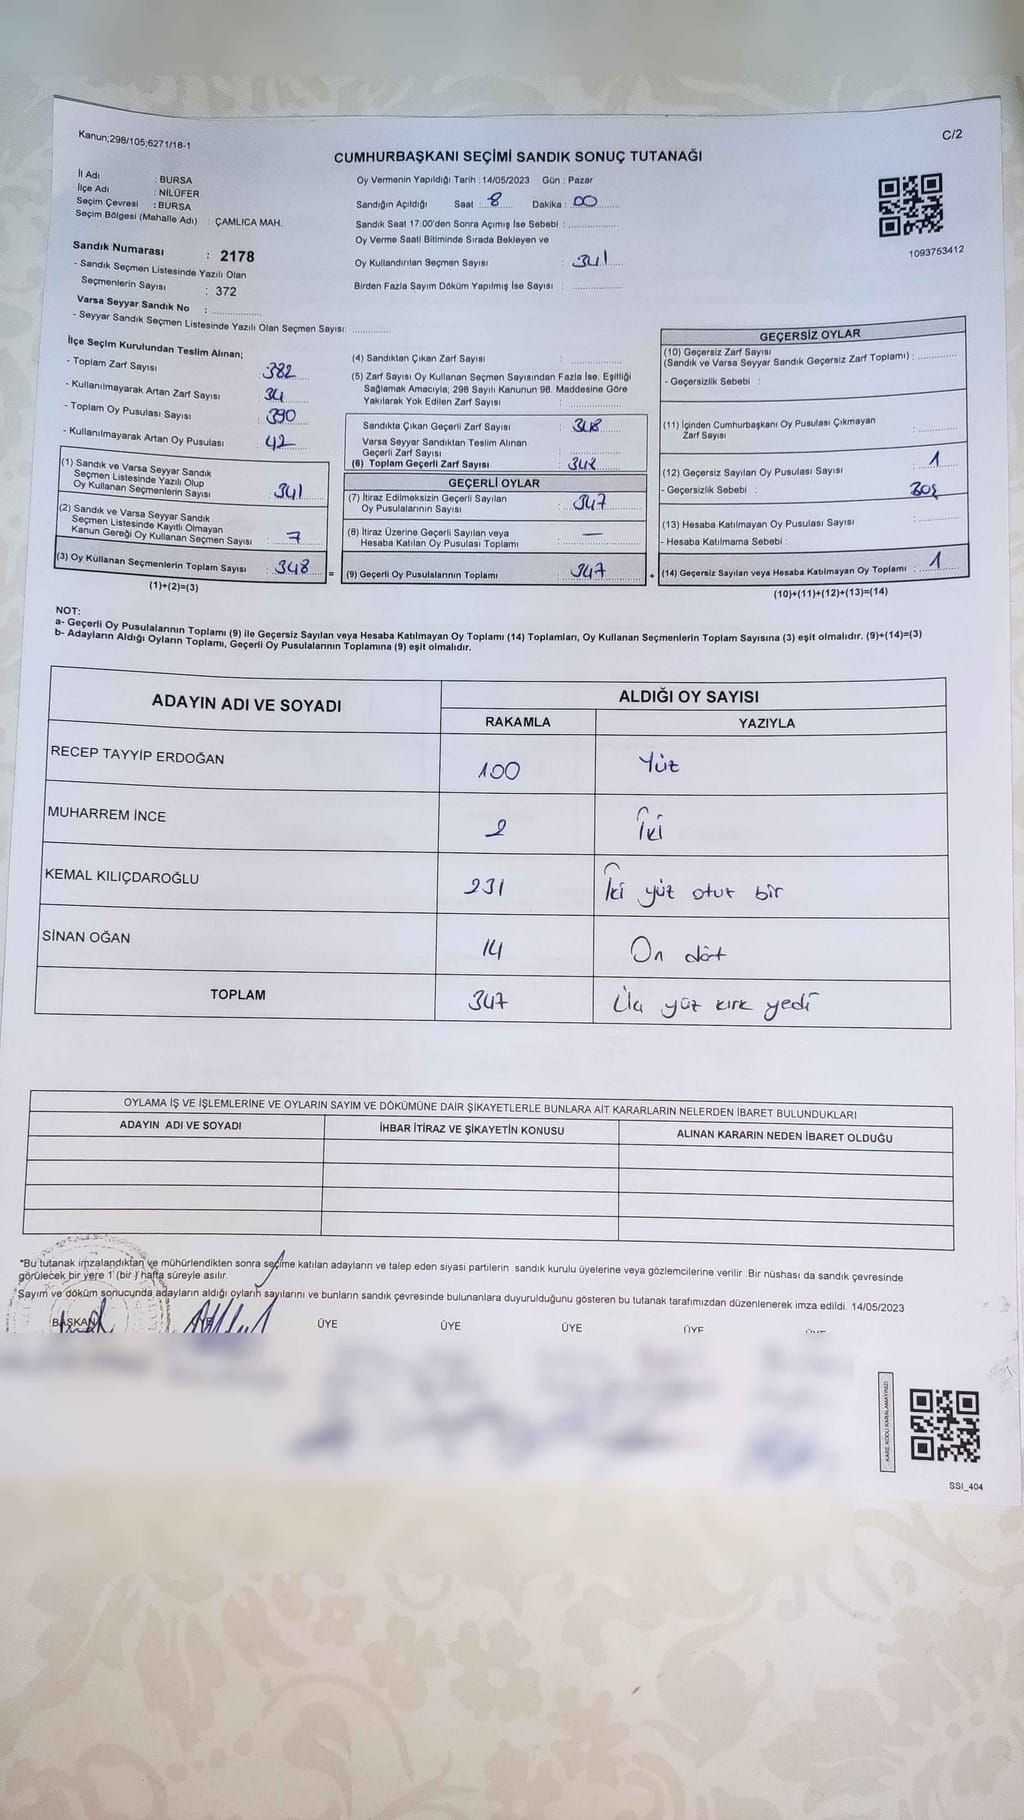 Kanun;298/105;6271/18-1
C/2
CUMHURBAŞKANI SEÇİMİ SANDIK SONUÇ TUTANAĞI
İl Adı : BURSA
İlçe Adı : NİLÜFER
Seçim Çevresi : BURSA
Seçim Bölgesi (Mahalle Adı) : ÇAMLICA MAH.
Sandık Numarası : 2178
- Sandık Seçmen Listesinde Yazılı Olan
Seçmenlerin Sayısı : 372
Varsa Seyyar Sandık No : ..............
- Seyyar Sandık Seçmen Listesinde Yazılı Olan Seçmen Sayısı: ............
Oy Vermenin Yapıldığı Tarih : 14/05/2023 Gün : Pazar
Sandığın Açıldığı Saat : 8 Dakika : 00
Sandık Saat 17:00'den Sonra Açımış İse Sebebi : ..............
Oy Verme Saati Bitiminde Sırada Bekleyen ve
Oy Kullandırılan Seçmen Sayısı : 341
Birden Fazla Sayım Döküm Yapılmış İse Sayısı : ..............
1093753412
İlçe Seçim Kurulundan Teslim Alınan;
- Toplam Zarf Sayısı : 382
- Kullanılmayarak Artan Zarf Sayısı : 34
- Toplam Oy Pusulası Sayısı : 390
- Kullanılmayarak Artan Oy Pusulası : 42
(1) Sandık ve Varsa Seyyar Sandık
Seçmen Listesinde Yazılı Olup
Oy Kullanan Seçmenlerin Sayısı : 341
(2) Sandık ve Varsa Seyyar Sandık
Seçmen Listesinde Kayıtlı Olmayan
Kanun Gereği Oy Kullanan Seçmen Sayısı : 7
(3) Oy Kullanan Seçmenlerin Toplam Sayısı : 348
(1)+(2)=(3)
=
(4) Sandıktan Çıkan Zarf Sayısı : ............
(5) Zarf Sayısı Oy Kullanan Seçmen Sayısından Fazla İse, Eşitliği
Sağlamak Amacıyla; 298 Sayılı Kanunun 98. Maddesine Göre
Yakılarak Yok Edilen Zarf Sayısı : ............
Sandıkta Çıkan Geçerli Zarf Sayısı : 348
Varsa Seyyar Sandıktan Teslim Alınan
Geçerli Zarf Sayısı : ............
(6) Toplam Geçerli Zarf Sayısı : 348
GEÇERLİ OYLAR
(7) İtiraz Edilmeksizin Geçerli Sayılan
Oy Pusulalarının Sayısı : 347
(8) İtiraz Üzerine Geçerli Sayılan veya
Hesaba Katılan Oy Pusulası Toplamı : —
(9) Geçerli Oy Pusulalarının Toplamı : 347
+
GEÇERSİZ OYLAR
(10) Geçersiz Zarf Sayısı
(Sandık ve Varsa Seyyar Sandık Geçersiz Zarf Toplamı) : ............
- Geçersizlik Sebebi :
(11) İçinden Cumhurbaşkanı Oy Pusulası Çıkmayan
Zarf Sayısı : ............
(12) Geçersiz Sayılan Oy Pusulası Sayısı : 1
- Geçersizlik Sebebi : Boş
(13) Hesaba Katılmayan Oy Pusulası Sayısı : ............
- Hesaba Katılmama Sebebi :
(14) Geçersiz Sayılan veya Hesaba Katılmayan Oy Toplamı : 1
(10)+(11)+(12)+(13)=(14)
NOT:
a- Geçerli Oy Pusulalarının Toplamı (9) ile Geçersiz Sayılan veya Hesaba Katılmayan Oy Toplamı (14) Toplamları, Oy Kullanan Seçmenlerin Toplam Sayısına (3) eşit olmalıdır. (9)+(14)=(3)
b- Adayların Aldığı Oyların Toplamı, Geçerli Oy Pusulalarının Toplamına (9) eşit olmalıdır.
ADAYIN ADI VE SOYADI ALDIĞI OY SAYISI
RAKAMLA YAZIYLA
RECEP TAYYİP ERDOĞAN 100 Yüz
MUHARREM İNCE 2 İki
KEMAL KILIÇDAROĞLU 231 İki yüz otuz bir
SİNAN OĞAN 14 On dört
TOPLAM 347 Üç yüz kırk yedi
OYLAMA İŞ VE İŞLEMLERİNE VE OYLARIN SAYIM VE DÖKÜMÜNE DAİR ŞİKAYETLERLE BUNLARA AİT KARARLARIN NELERDEN İBARET BULUNDUKLARI
ADAYIN ADI VE SOYADI İHBAR İTİRAZ VE ŞİKAYETİN KONUSU ALINAN KARARIN NEDEN İBARET OLDUĞU
*Bu tutanak imzalandıktan ve mühürlendikten sonra seçime katılan adayların ve talep eden siyasi partilerin sandık kurulu üyelerine veya gözlemcilerine verilir. Bir nüshası da sandık çevresinde
görülecek bir yere 1 (bir ) hafta süreyle asılır.
*Sayım ve döküm sonucunda adayların aldığı oyların sayılarını ve bunların sandık çevresinde bulunanlara duyurulduğunu gösteren bu tutanak tarafımızdan düzenlenerek imza edildi. 14/05/2023
BAŞKAN ÜYE ÜYE ÜYE ÜYE ÜYE ÜYE
KARE KODU KARALAMAYINIZ!
SSI_404